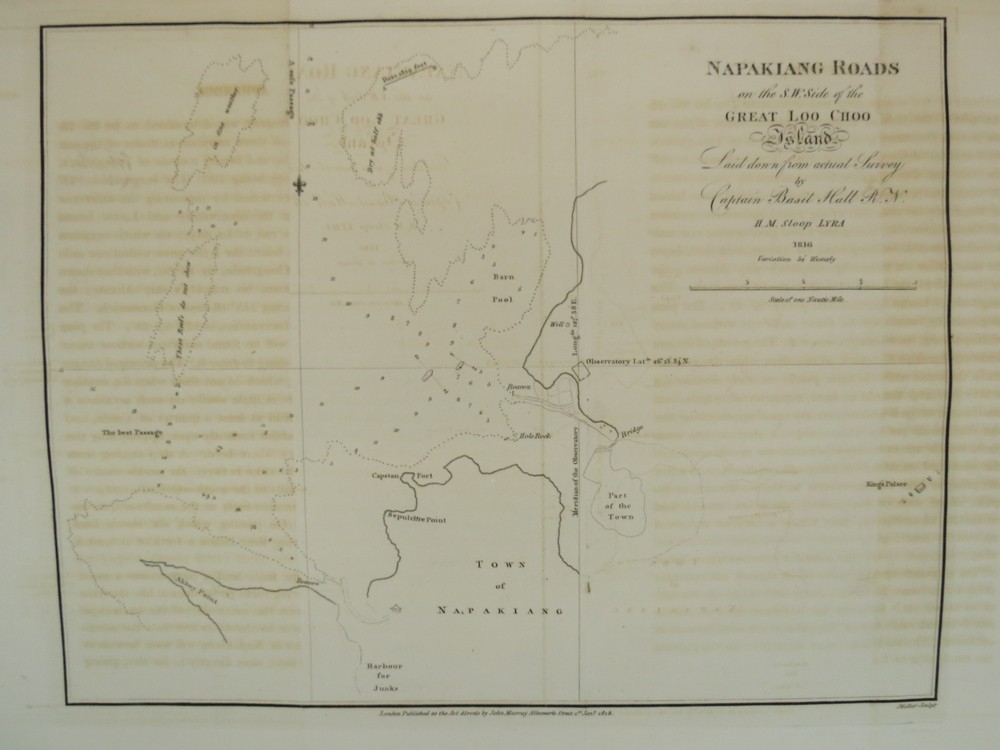 NAPAKIANG ROADS
on the S.W. Side of the
GREAT LOO CHOO
Island
Laid down from actual Survey
by
Captain Basil Hall R.N.
H.M. Sloop LYRA
1816
Variation Westerly
Scale of one Nautic Mile
A safe Passage
in fine weather
Dries this feet
dry at half ebb
These Reefs do not show
Barn
Pool
Well
Longde 127° 38' E.
Observatory Latde 26° 13' 34" N.
Beacon
Hole Rock
Bridge
The best Passage
Meridian of the Observatory
Capstan Point
King's Palace
Part
of the
Town
Sepulchre Point
TOWN
of
NAPAKIANG
Abbey Point
Beacon
Harbour
for
Junks
London Published as the Act directs by John Murray Albemarle Street 1st Jany 1818.
Sculpt